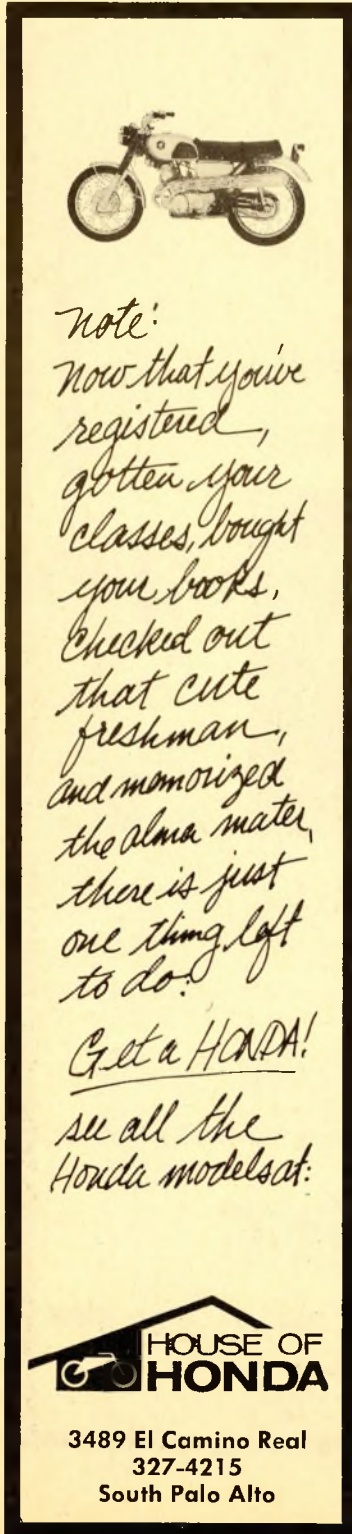 note:
now that you've
registered,
gotten your
classes, bought
your books,
checked out
that cute
freshman,
and memorized
the alma mater,
there is just
one thing left
to do:
Get a HONDA!
see all the
Honda models at:
HOUSE OF
HONDA
3489 El Camino Real
327-4215
South Palo Alto